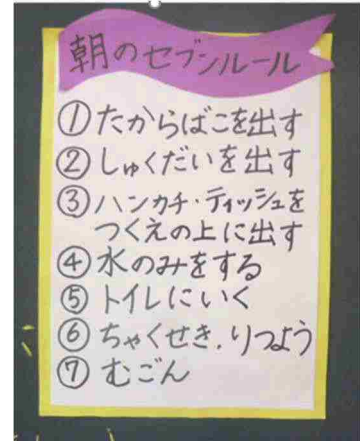 朝のセブンルール
①たからばこを出す
②しゅくだいを出す
③ハンカチ・ティッシュを
つくえの上に出す
④水のみをする
⑤トイレにいく
⑥ちゃくせき.りつよう
⑦むごん